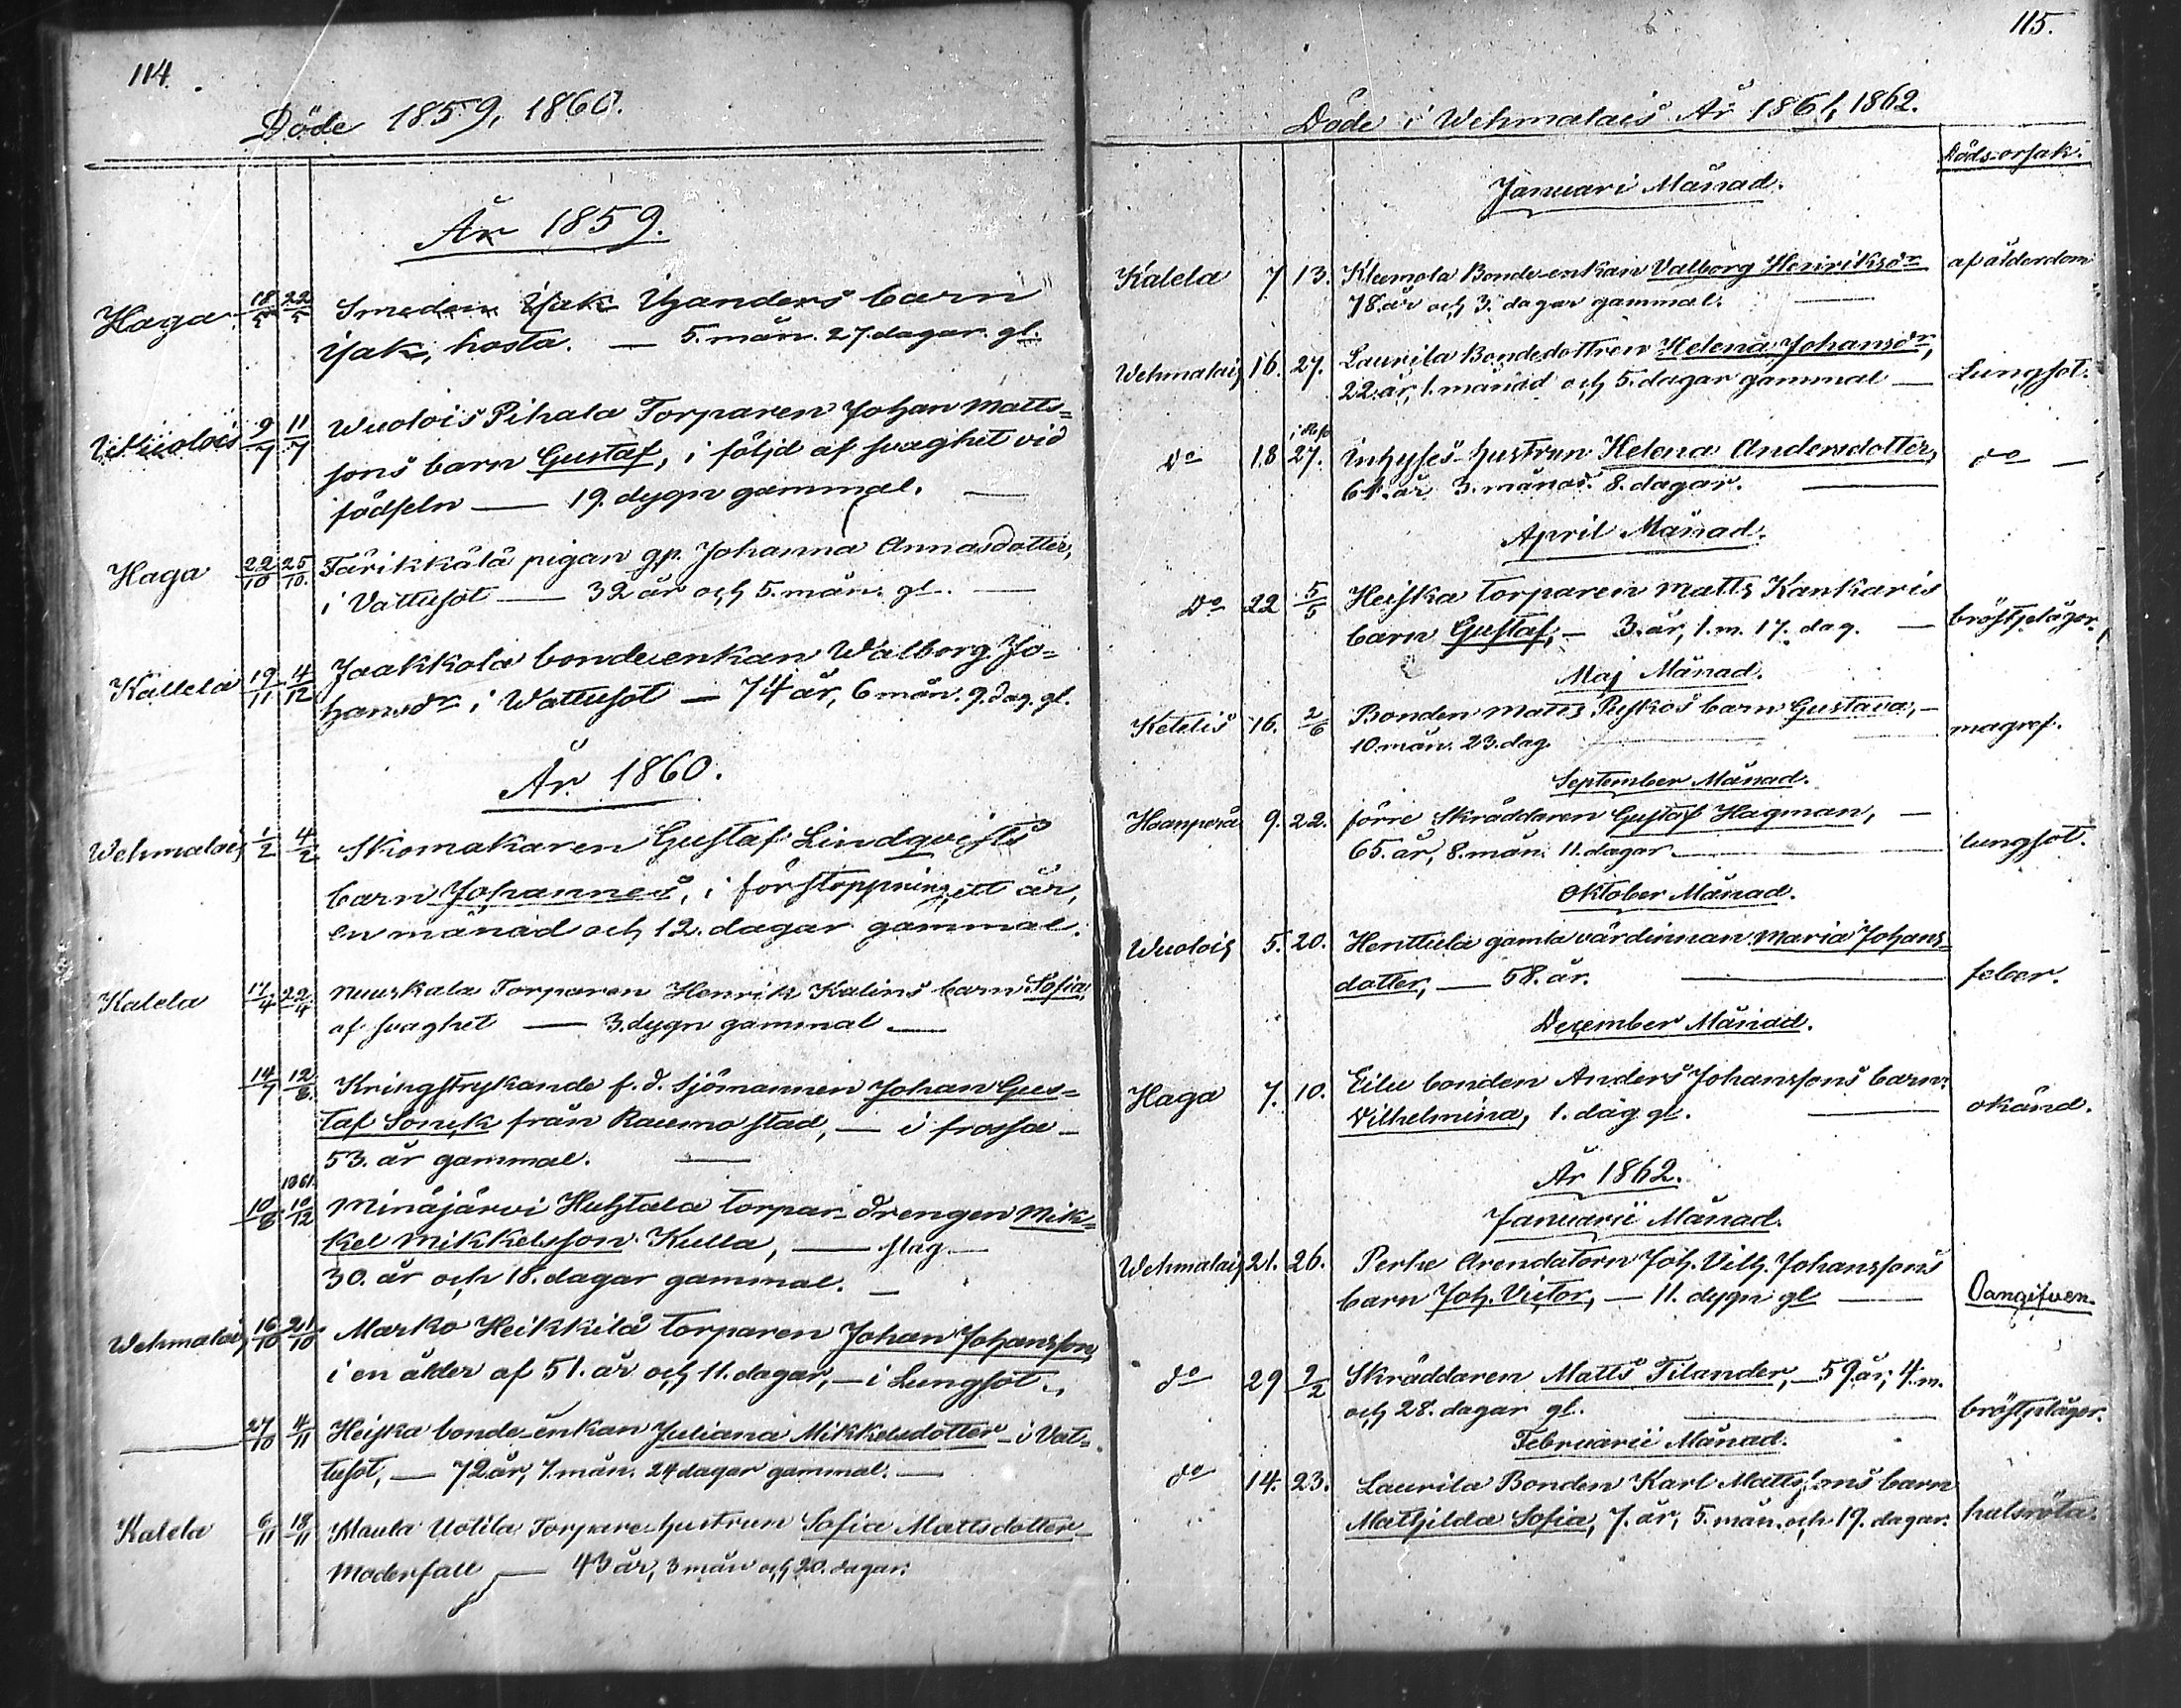 114.
Döde 1859, 1860.
År 1859.
Haga 18/5 22/5 Smeden Isak Uganders barn
Isak, hosta. — 5. mån. 27. dagar. gl.
Wuolois 9/7 11/7 Wuolois Pihala Torparen Johan Matts=
sons barn Gustaf, i följd af svaghet vid
födseln — 19. dygn gammal. —
Haga 22/10 25/10. Tärikkälä pigan gp. Johanna Annasdotter,
i Vattusot — 32 år och 5. mån. gl. —
Kallela 19/11 4/12 Jaakkola bondeenkan Walborg Jo=
hansdr i Wattusot — 74 år, 6 mån. 9. dag. gl.
År 1860.
Wehmalais 1/2 4/2 Skomakaren Gustaf Lindqvists
barn Johannes, i förstoppning, ett år,
en månad och 12. dagar gammal.
Kalela 17/4 22/4 Nuuskala Torparen Henrik Kalins barn Sofia,
af svaghet — 3. dygn gammal —
14/7 12/8. Kringstrykande f. d. sjömannen Johan Gus=
taf Sonck från Raumo stad, — i frossa —
53. år gammal. —
1861.
10/8 10/12 Minäjärvi Huhtala torpar-drengen Mik=
kel Mikkelsson Kulla, — slag —
30. år och 18. dagar gammal. —
Wehmalais 16/10 21/10 Marko Heikkilä torparen Johan Johansson,
i en ålder af 51. år och 11. dagar, — i Lungsot.
— 27/10 4/11 Heiska bonde-enkan Juliana Mikkelsdotter — i Vat=
tusot, — 72 år, 7. mån. 24 dagar gammal. —
Kalela 6/11 18/11 Klaula Uotila Torpare-hustrun Sofia Mattsdotter —
Moderfall — 43 år, 3 mån och 20. dagar.
115.
Döde i Wehmalais År 1861, 1862.
Döds-orsak.
Januari Månad.
Kalela 7 13. Klemola Bonde-enkan Valborg Henriksdr af ålderdom
78. år och 3. dagar gammal. —
Wehmalais 16. 27. Laurila Bondedottren Helena Johansdr,
22. år, 1. månad och 5. dagar gammal — Lungsot.
do 18 27. Inhyses-hustrun Helena Andersdotter, do —
61. år 3. månad. 8. dagar. —
April Månad.
Do 22 5/5 Heiska torparen Matts Kankaris
barn Gustaf, — 3. år, 1. m. 17. dag. — bröstplågor.
Maj Månad.
Ketelis 16. 2/6 Bonden Matts Puskos barn Gustava, —
10. mån. 23. dag. — magref.
September Månad.
Haanperä 9. 22. förre Skräddaren Gustaf Hagman, —
65. år, 8. mån. 11. dagar — lungsot.
Oktober Månad.
Wuolois 5. 20. Henttula gamla värdinnan Maria Johans=
dotter, — 58. år. — feber.
December Månad.
Haga 7. 10. Eilu bonden Anders Johanssons barn
Vilhelmina, 1. dag gl. — okänd.
År 1862.
Januarii Månad.
Wehmalais 21. 26. Perhe Arendatorn Joh. Vilh. Johanssons
barn Joh. Victor, — 11. dygn gl — Oangifven.
do 29 9/2 Skräddaren Matts Tilander, — 59. år, 4. m.
och 28. dagar gl. — bröstplågor.
Februarii Månad.
do 14. 23. Laurila Bonden Karl Mattssons barn
Mathilda Sofia, 7. år, 5. mån. och 19. dagar. halsröta.